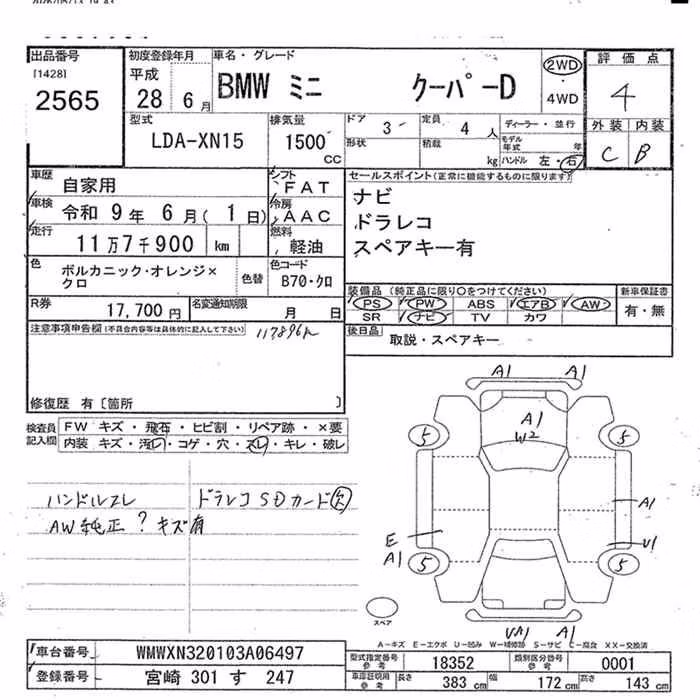 出品番号 初度登録年月 車名・グレード 評価点
[1428] 平成 BMW ミニ クーパーD 2WD ・ 4
2565 28 6月 4WD
型式 排気量 ドア 3 定員 4人 ディーラー・並行 外装 内装
LDA-XN15 1500 CC 形状 積載 kg モデル年式 年 C B
ハンドル 左・右
車歴 自家用 シフト FAT セールスポイント(正常に機能するものに限ります)
車検 令和 9年 6月( 1日) 冷房 AAC ナビ
走行 11万7千900 km 燃料 軽油 ドラレコ
スペアキー有
色 ボルカニック・オレンジ×クロ 色替 色コード B70・クロ
装備品 (純正品に限り○をつけてください) 新車保証書
PS PW ABS エアB AW 有・無
R券 17,700円 名変通知期限 月 日 SR ナビ TV カワ
注意事項申告欄(不具合内容等は具体的に記入して下さい) 117896k
後日品 取説・スペアキー
修復歴 有〔箇所 〕
検査員記入欄 FW キズ・飛石・ヒビ割・リペア跡・×要
内装 キズ・汚レ・コゲ・穴・スレ・キレ・破レ
ハンドルスレ ドラレコSDカード欠
AW純正?キズ有
A1 A1
A1
W2
5 5
A1
E
A1 U1
5 5
スペア
A1
A-キズ E-エクボ U-凹み W-補修跡 S-サビ C-腐食 XX-交換済
車台番号 WMWXN320103A06497 型式指定番号 参考 18352 類別区分番号 参考 0001
登録番号 宮崎 301 す 247 車庫証明用 参考 長さ 383 cm 幅 172 cm 高さ 143 cm